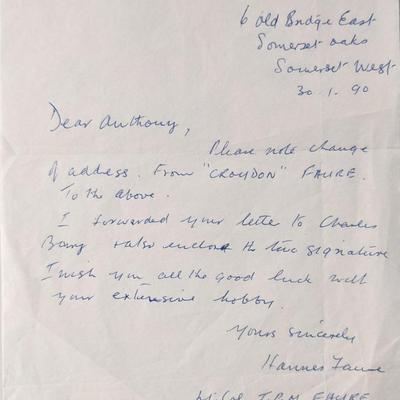 6 Old Bridge East
Somerset Oaks
Somerset West
30.1.90
Dear Anthony,
Please note change
of address. From "CROYDON" FAURE.
To the above.
I forwarded your lette to Charles
+ also enclose the two signature
I wish you all the good luck with
your extensive hobby.
Yours sincerely
Hannes Faure
J.P.M. FAURE